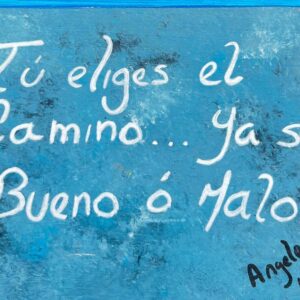 Tú eliges el
Camino... Ya s
Bueno ó Malo
Angele